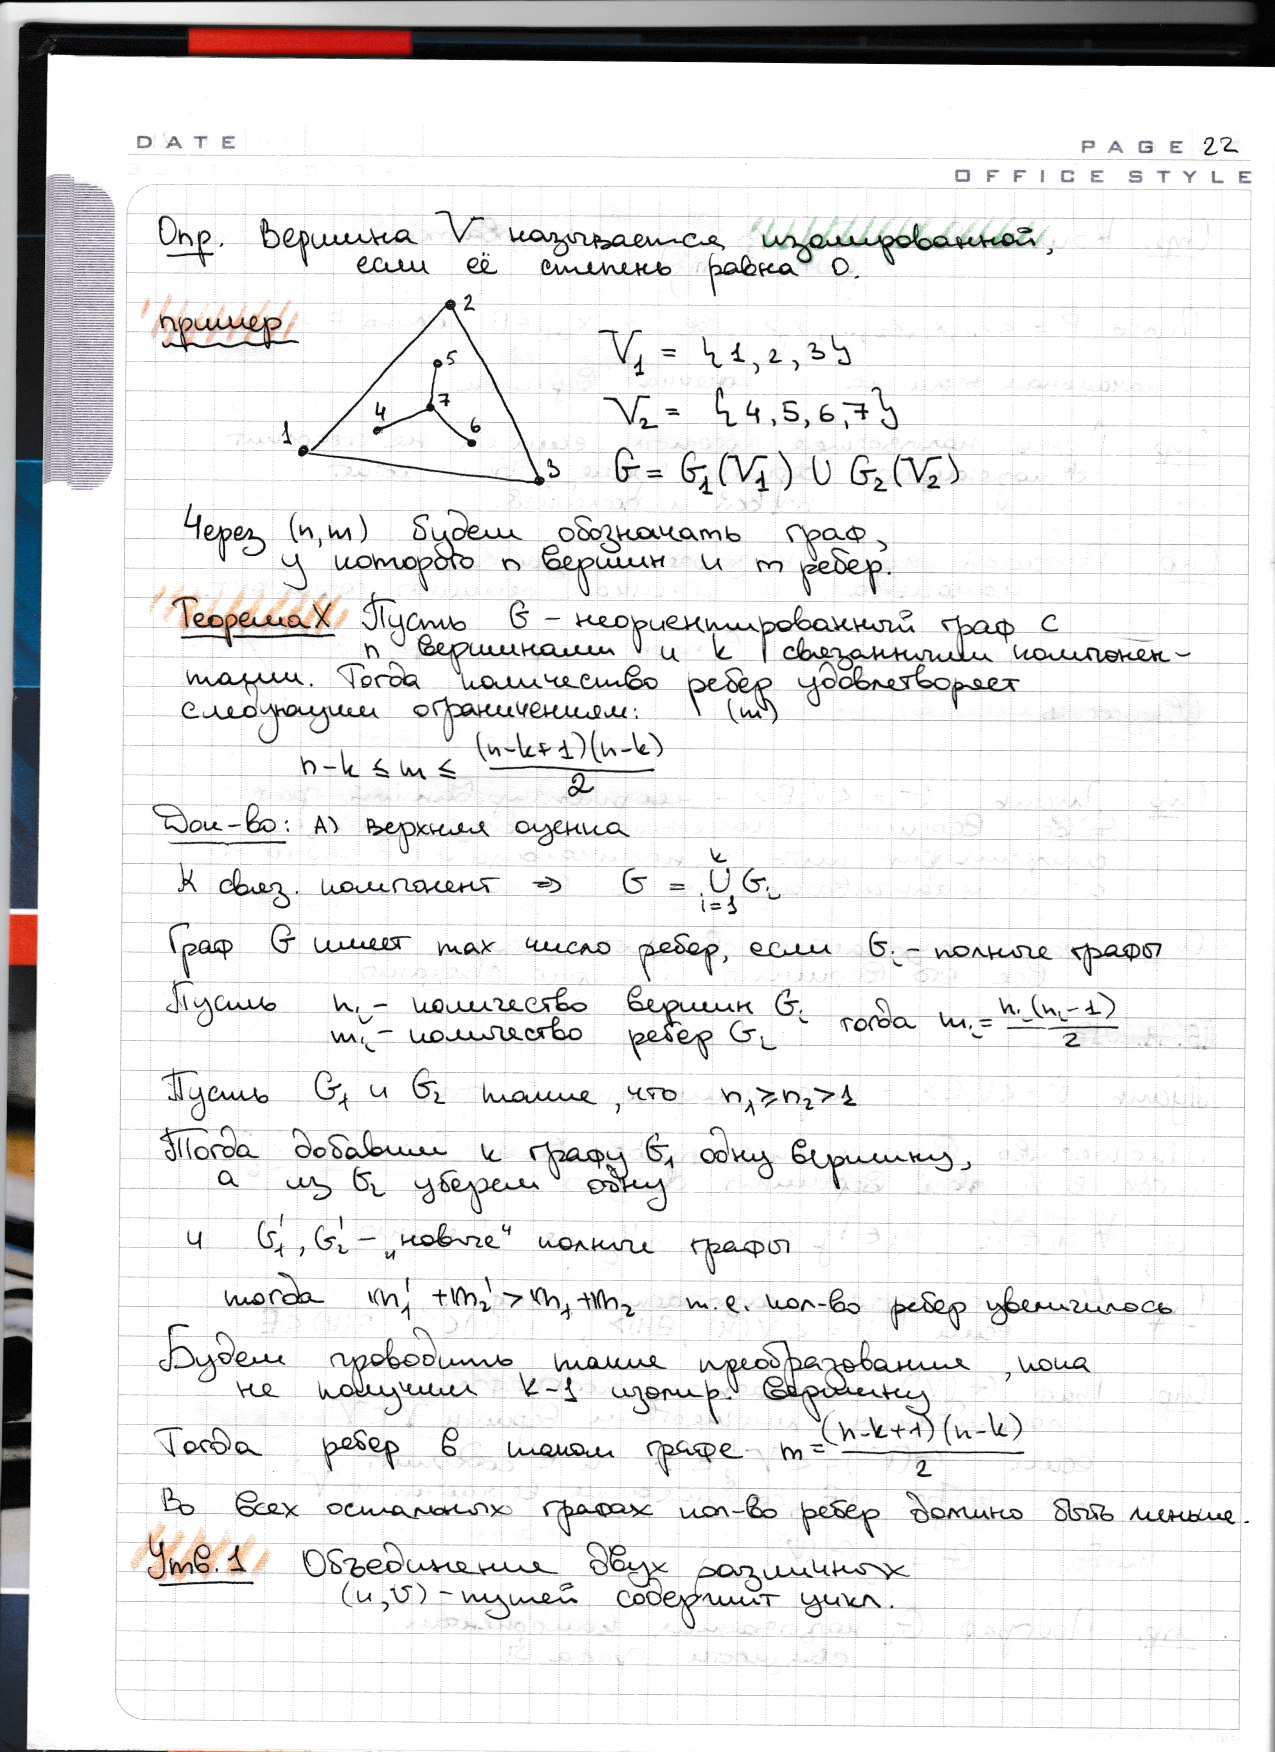 DATE
PAGE 22
OFFICE STYLE
Опр. Вершина V называется изолированной,
если её степень равна 0.
пример
2
5
4
7
6
1
3
V₁ = {1, 2, 3}
V₂ = {4, 5, 6, 7}
G = G₁(V₁) ∪ G₂(V₂)
Через (n, m) будем обозначать граф,
у которого n вершин и m ребер.
Теорема X Пусть G – неориентированный граф с
n вершинами и k связанными компонен-
тами. Тогда количество ребер удовлетворяет
следующим ограничениям: (m)
n-k ≤ m ≤ (n-k+1)(n-k)/2
Док-во: А) верхняя оценка
К связ. компонент ⇒ G = ⋃ᵢ₌₁ᵏ Gᵢ
Граф G имеет max число ребер, если Gᵢ – полные графы
Пусть nᵢ – количество вершин Gᵢ тогда mᵢ = nᵢ(nᵢ-1)/2
mᵢ – количество ребер Gᵢ
Пусть G₁ и G₂ такие, что n₁ ≥ n₂ > 1
Тогда добавим к графу G₁ одну вершину,
а из G₂ уберем одну
и G₁', G₂' – „новые“ полные графы
тогда m₁' + m₂' > m₁ + m₂ т.е. кол-во ребер увеличилось
Будем проводить такие преобразования, пока
не получим k-1 изолир. вершину
Тогда ребер в таком графе m = (n-k+1)(n-k)/2
Во всех остальных графах кол-во ребер должно быть меньше.
Утв. 1 Объединение двух различных
(u, v) – путей содержит цикл.